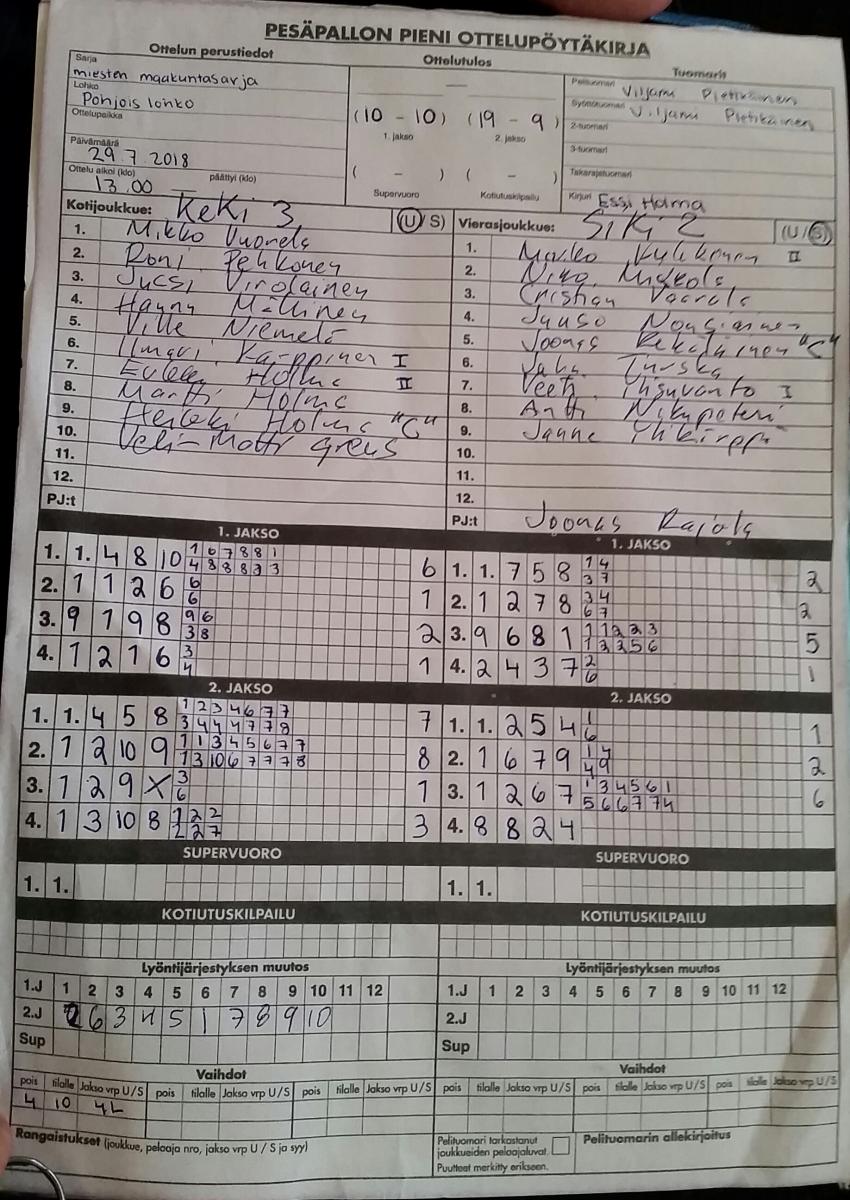 PESÄPALLON PIENI OTTELUPÖYTÄKIRJA
Ottelun perustiedot
Ottelutulos
Tuomarit
Sarja
miesten maakuntasarja
Lohko
Pohjois lohko
Ottelupaikka
Päivämäärä
29.7.2018
Ottelu alkoi (klo) päättyi (klo)
13.00
(10 - 10) (19 - 9)
1. jakso 2. jakso
( - ) ( - )
Supervuoro Kotiutuskilpailu
Pelituomari Viljami Pietikäinen
Syöttötuomari Viljami Pietikäinen
2-tuomari
3-tuomari
Takarajatuomari
Kirjuri Essi Holma
Kotijoukkue: KeKi 3 (U/S)
1. Mikko Vuorela
2. Roni Pehkonen
3. Jussi Virolainen
4. Hannu Mällinen
5. Ville Niemelä
6. Ilmari Karppinen I
7. Holma II
8. Martti Holma
9. Heikki Holma "C"
10. Veli-Matti Greus
11.
12.
PJ:t
Vierasjoukkue: SiKi 2 (U/S)
1. Marko Kylkönen II
2. Niko
3. Cristian Vaarala
4. Juuso Nousiainen
5. Joonas "C"
6. Turska
7. Veeti Ylisuvanto I
8. Antti Nikupeteri
9. Janne Ylikärppä
10.
11.
12.
PJ:t Joonas Rajala
1. JAKSO
1. 1. 4 8 10 1 6 7 8 8 1 6
4 8 8 8 3 3
2. 1 1 2 6 6 1
6
3. 9 1 9 8 9 6 2
3 8
4. 1 2 1 6 3 1
4
1. JAKSO
1. 1. 7 5 8 1 4 2
3 7
2. 1 2 7 8 3 4 2
6 7
3. 9 6 8 1 1 1 2 2 3 5
1 2 3 5 6
4. 2 4 3 7 2 1
6
2. JAKSO
1. 1. 4 5 8 1 2 3 4 6 7 7 7
3 4 4 4 7 7 8
2. 1 2 10 9 1 1 3 4 5 6 7 7 8
1 3 10 6 7 7 7 8
3. 1 2 9 X 3 1
6
4. 1 3 10 8 1 2 2 3
2 2 7
2. JAKSO
1. 1. 2 5 4 1 1
6
2. 1 6 7 9 1 4 2
4 9
3. 1 2 6 7 1 3 4 5 6 1 6
5 6 6 7 7 4
4. 8 8 2 4
SUPERVUORO
1. 1.
SUPERVUORO
1. 1.
KOTIUTUSKILPAILU
KOTIUTUSKILPAILU
Lyöntijärjestyksen muutos
1.J 1 2 3 4 5 6 7 8 9 10 11 12
2.J 2 6 3 4 5 1 7 8 9 10
Sup
Lyöntijärjestyksen muutos
1.J 1 2 3 4 5 6 7 8 9 10 11 12
2.J
Sup
Vaihdot
pois tilalle Jakso vrp U/S pois tilalle Jakso vrp U/S pois tilalle Jakso vrp U/S
4 10 4L
Vaihdot
pois tilalle Jakso vrp U/S pois tilalle Jakso vrp U/S pois tilalle Jakso vrp U/S
Rangaistukset (joukkue, pelaaja nro, jakso vrp U / S ja syy)
Pelituomari tarkastanut
joukkueiden pelaajaluvat.
Puutteet merkitty erikseen.
Pelituomarin allekirjoitus